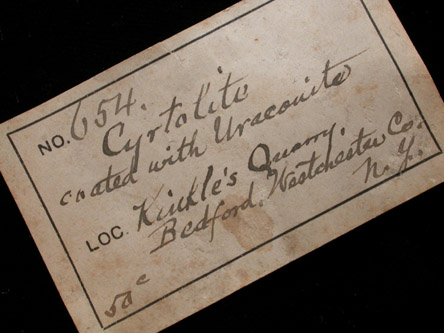 NO. 654.
Cyrtolite
coated with Uraconite
LOC. Kinkle's Quarry.
Bedford. Westchester Co.
N. Y.
50c